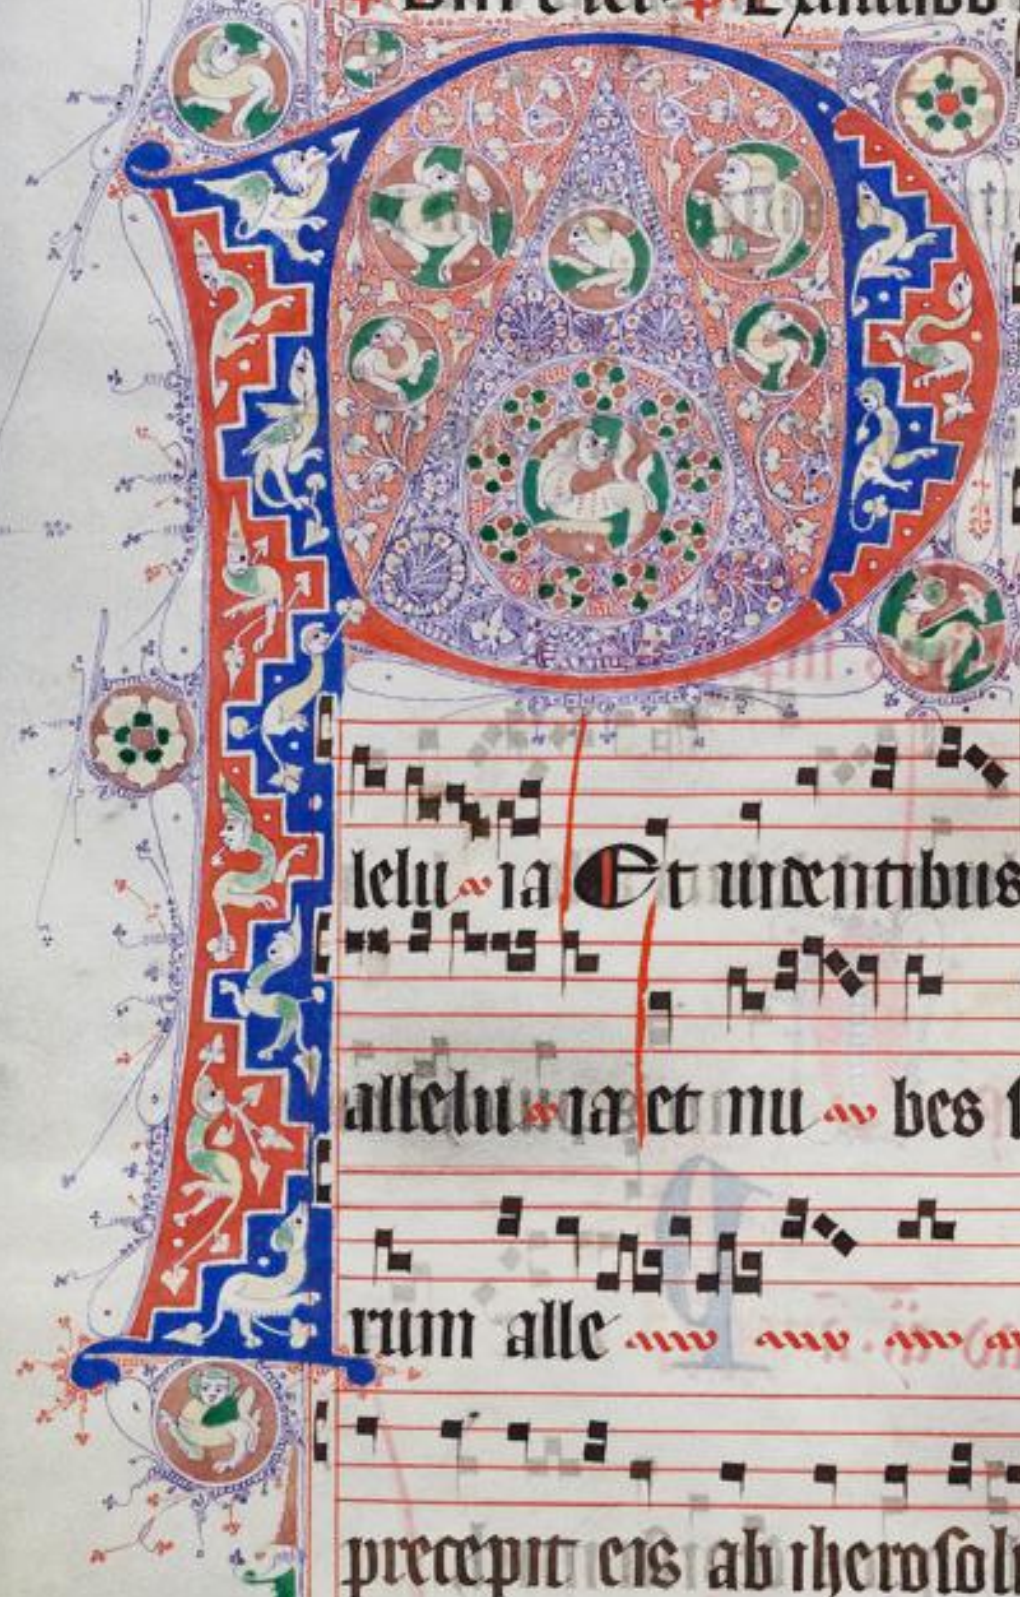 P
lelu ia Et uidentibus
allelu ia et nu bes
rum alle
precepit eis ab iherosoli